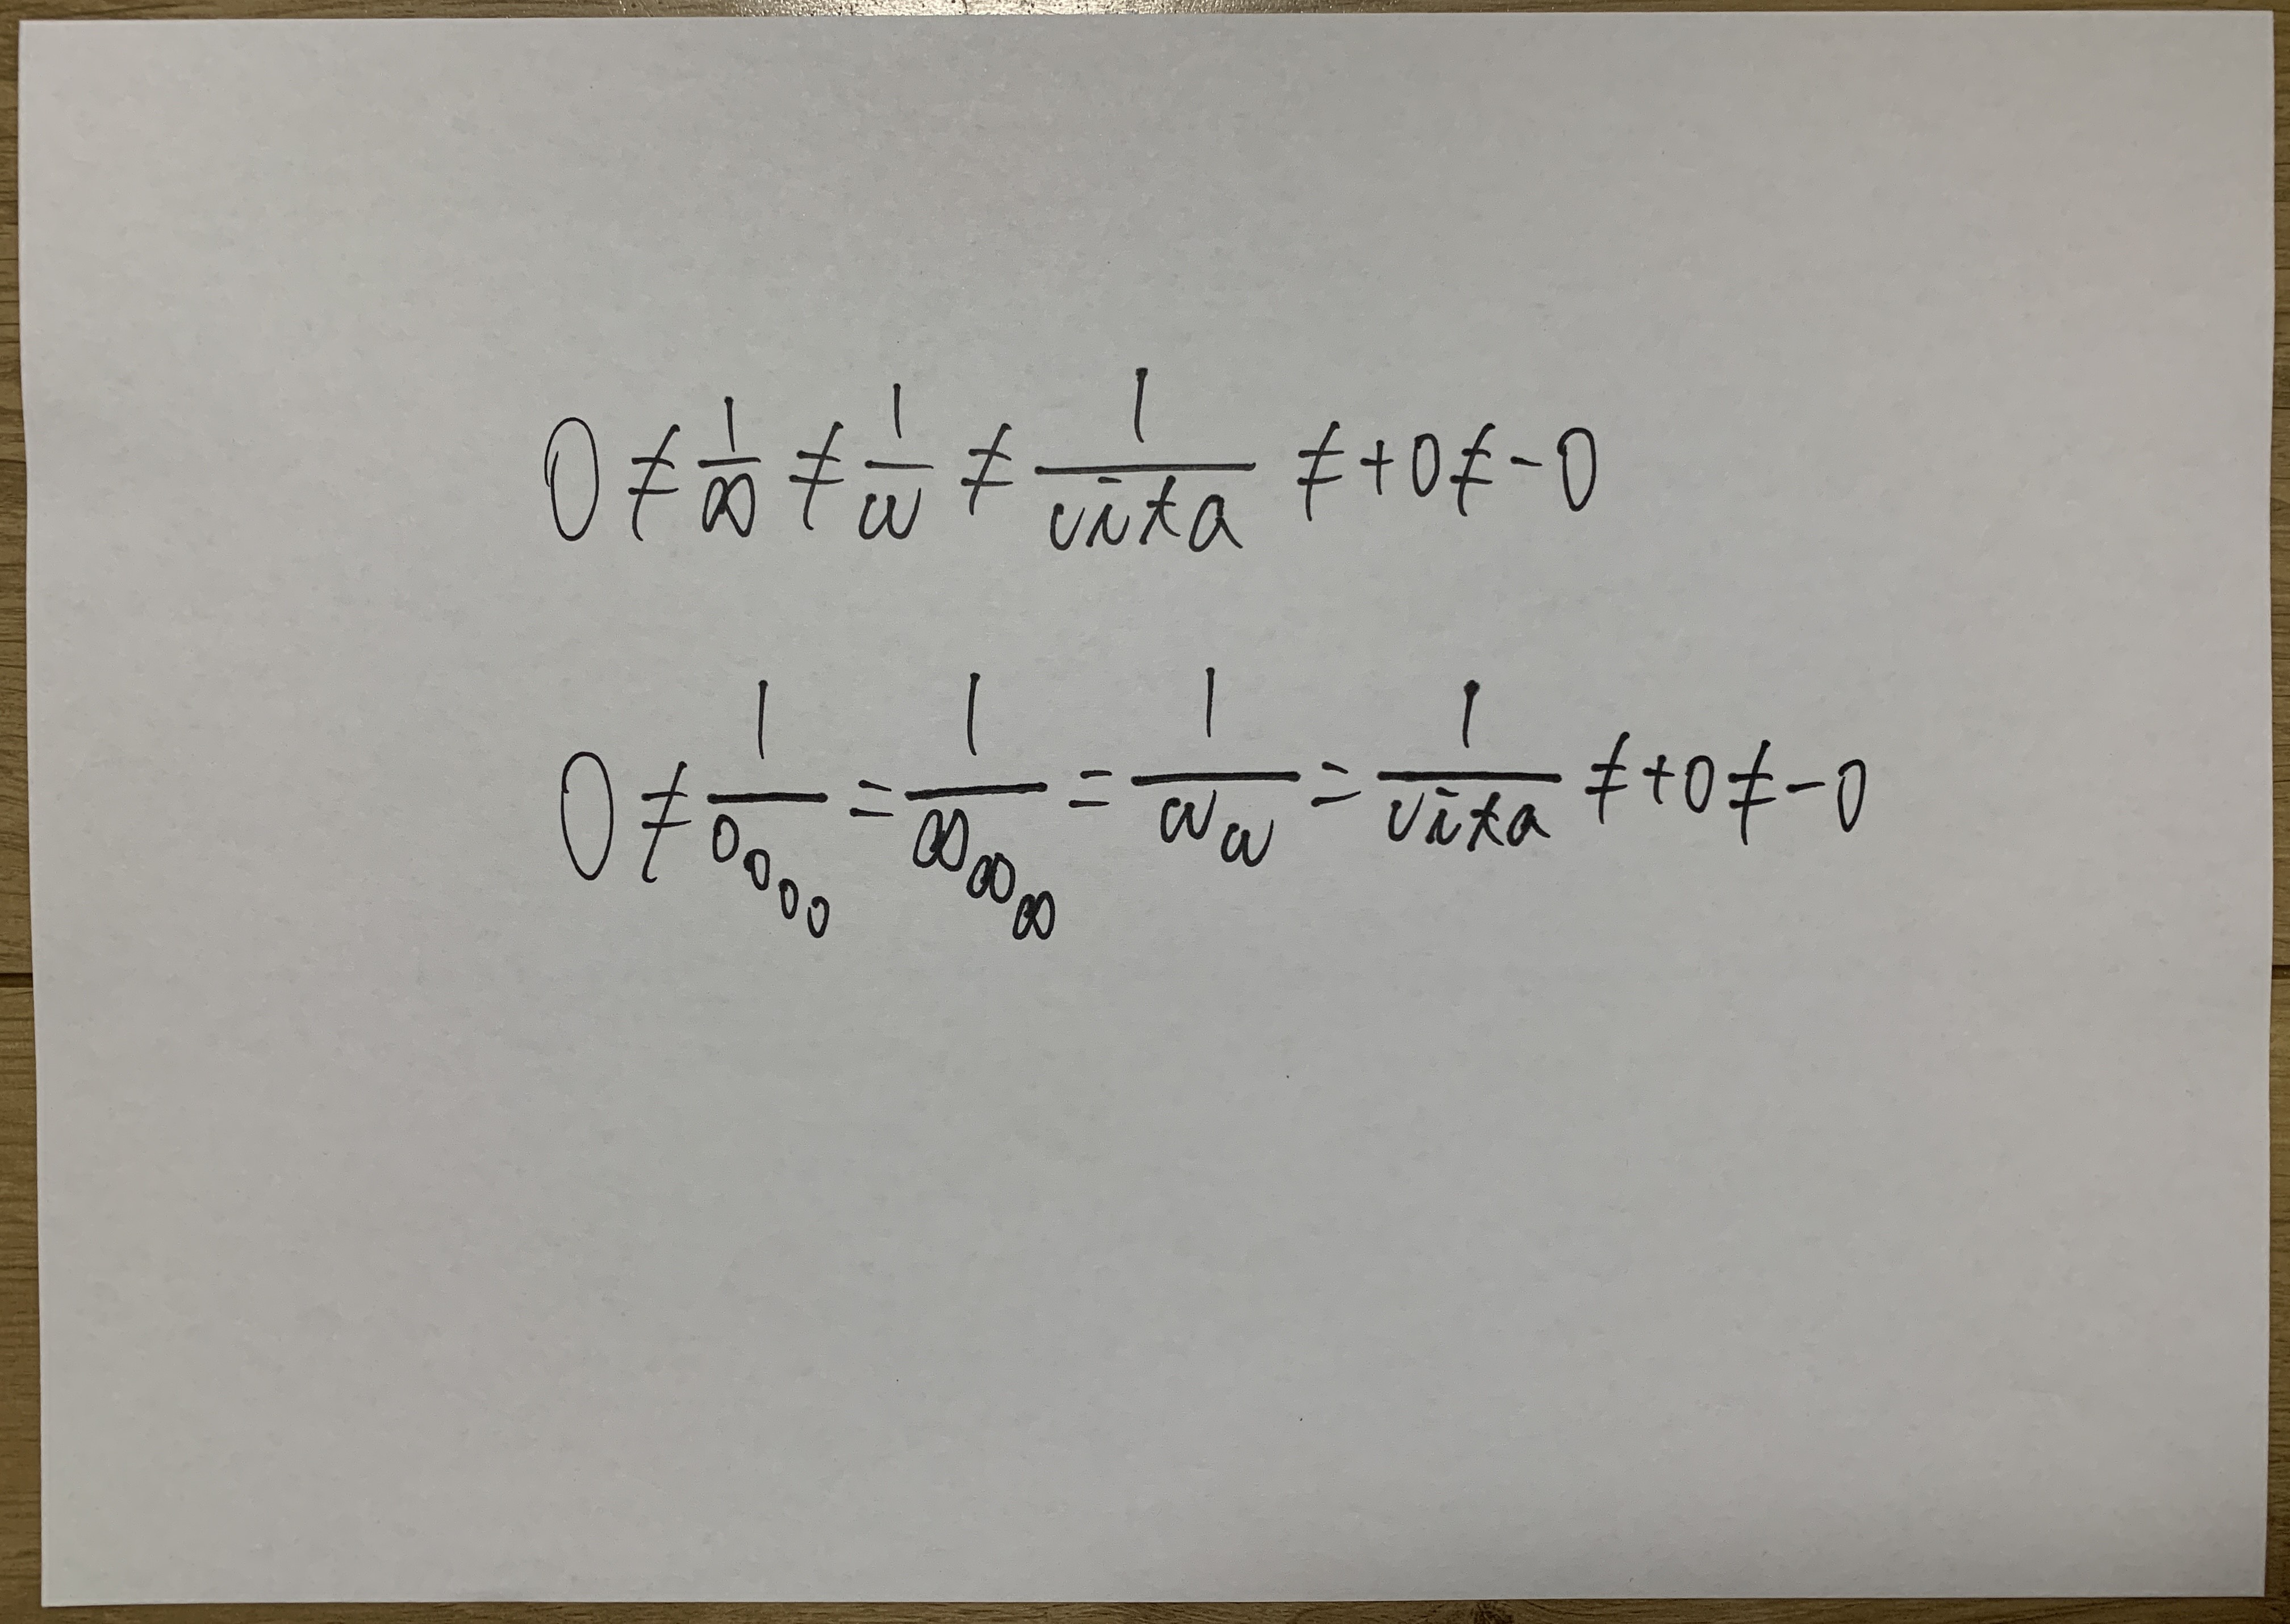 0 ≠ 1/∞ ≠ 1/ω ≠ 1/vita ≠ +0 ≠ -0
0 ≠ 1/0₀₀₀ = 1/∞_∞_∞ = 1/ω_ω = 1/vita ≠ +0 ≠ -0